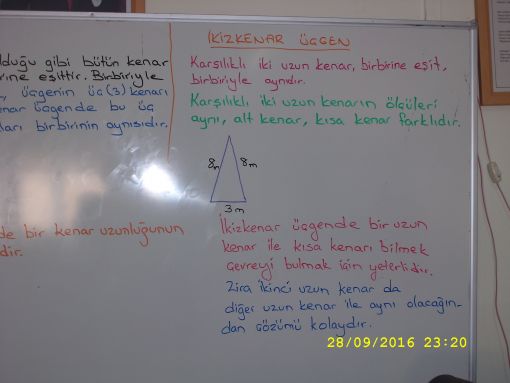 İKİZKENAR ÜÇGEN
olduğu gibi bütün kenar
rine eşittir. Birbiriyle
, üçgenin üç (3) kenarı
nar üçgende bu üç
ları birbirinin aynısıdır.
Karşılıklı iki uzun kenar, birbirine eşit,
birbiriyle aynıdır.
Karşılıklı iki uzun kenarın ölçüleri
aynı, alt kenar, kısa kenar farklıdır.
8m 8m
3m
de bir kenar uzunluğunun
dir.
İkizkenar üçgende bir uzun
kenar ile kısa kenarı bilmek
çevreyi bulmak için yeterlidir.
Zira ikinci uzun kenar da
diğer uzun kenar ile aynı olacağın-
dan çözümü kolaydır.
28/09/2016 23:20